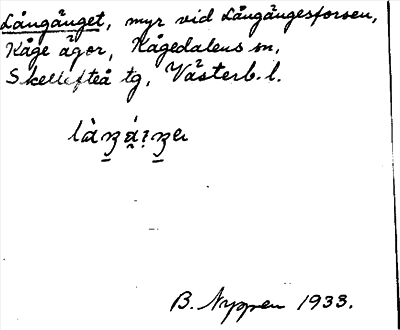 Långänget, myr vid Långängesforsen,
Kåge ägor, Kågedalens sn,
Skellefteå tg, Västerb. l.
B. Nyppen 1933.